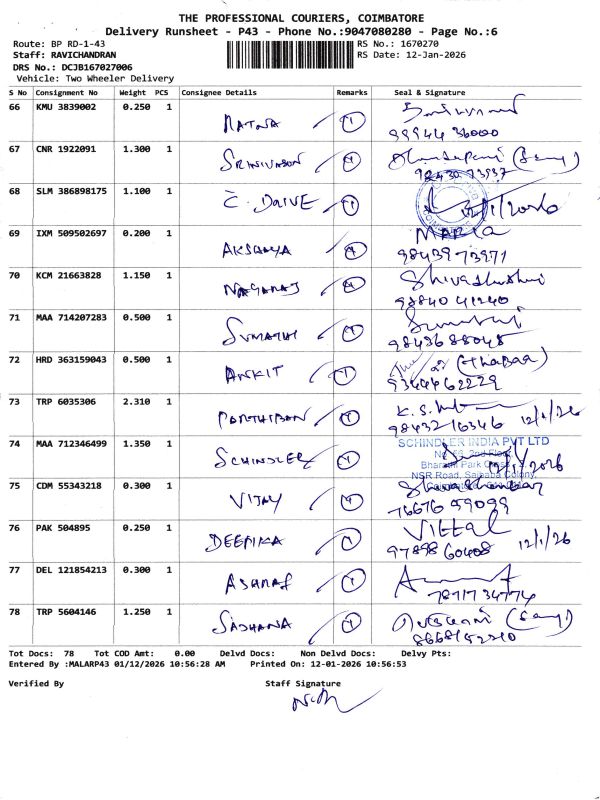 THE PROFESSIONAL COURIERS, COIMBATORE
Delivery Runsheet - P43 - Phone No.:9047080280 - Page No.:6
Route: BP RD-1-43 RS No.: 1670270
Staff: RAVICHANDRAN RS Date: 12-Jan-2026
DRS No.: DCJB167027006
Vehicle: Two Wheeler Delivery
S No Consignment No Weight PCS Consignee Details Remarks Seal & Signature
66 KMU 3839002 0.250 1
RATNA 1
99944 36000
67 CNR 1922091 1.300 1
SRINIVASON 1
68 SLM 386898175 1.100 1
C. DRIVE 1
69 IXM 509502697 0.200 1 MARIA
AKSHAYA 1 98439 73971
70 KCM 21663828 1.150 1
NAGARAJ 1 98840 41240
71 MAA 714207283 0.500 1
SUMATHI 1 98436 88048
72 HRD 363159043 0.500 1
ANKIT 1 9344462229
73 TRP 6035306 2.310 1
PARTHIBAN 1 98432 16346 12/1/26
74 MAA 712346499 1.350 1 SCHINDLER INDIA PVT LTD
SCHINDLER 1
NSR Road, Saibaba Colony,
75 CDM 55343218 0.300 1
VIJAY 1 76676 59099
76 PAK 504895 0.250 1 VITTAL
DEEPIKA 1 97898 60408 12/1/26
77 DEL 121854213 0.300 1
ASHRAF 1 7871734774
78 TRP 5604146 1.250 1
SADHANA 1
Tot Docs: 78 Tot COD Amt: 0.00 Delvd Docs: Non Delvd Docs: Delvy Pts:
Entered By :MALARP43 01/12/2026 10:56:28 AM Printed On: 12-01-2026 10:56:53
Verified By Staff Signature